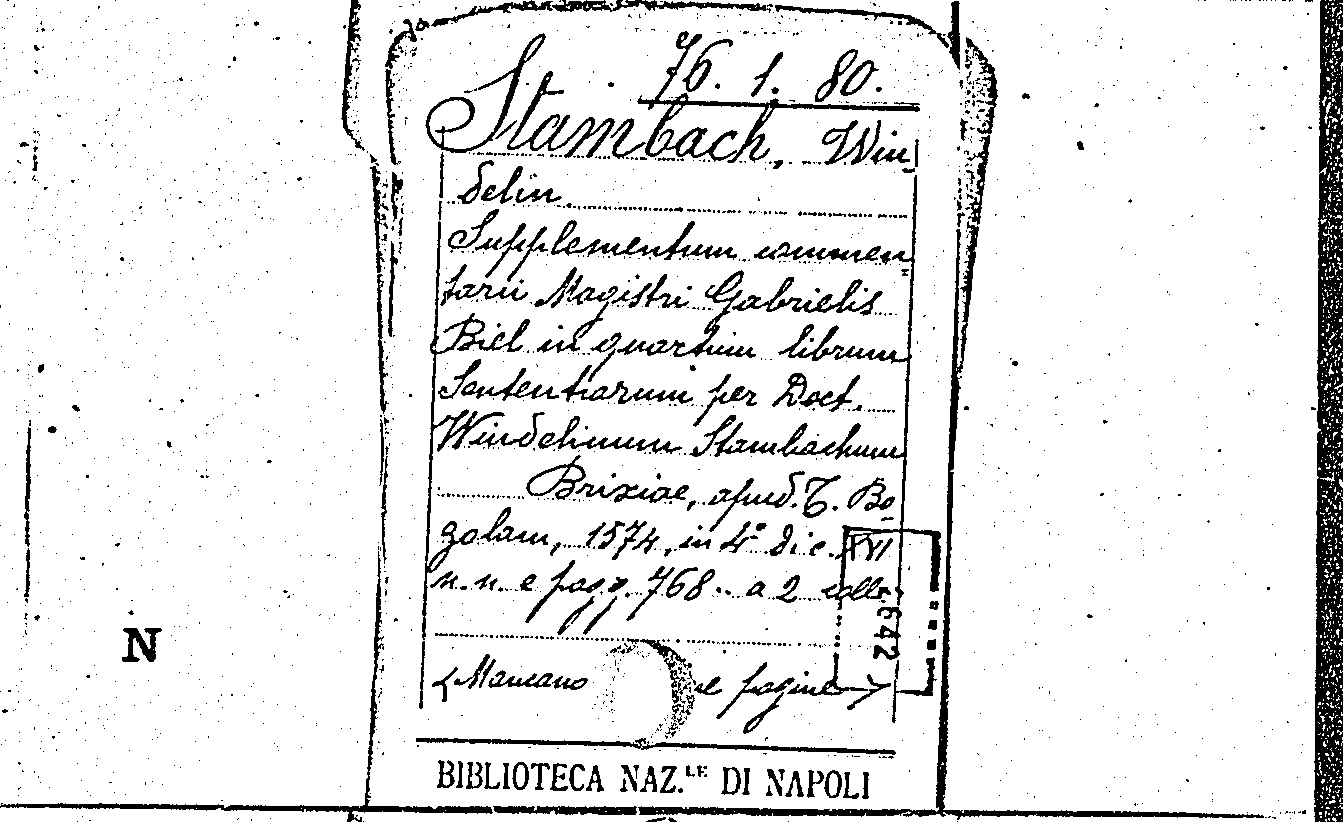 76. 1. 80.
Stambach, Win
delin
Supplementum commen
tarii Magistri Gabrielis
Biel in quartum librum
Sententiarum per Doct.
Windelinum Stambachum
Brixiae, apud T. Bo
zolam, 1574, in 4° di c. XVI
n. n. e pagg. 768.. a 2 coll.
642
<Mancano e pagine>
N
BIBLIOTECA NAZ.LE DI NAPOLI